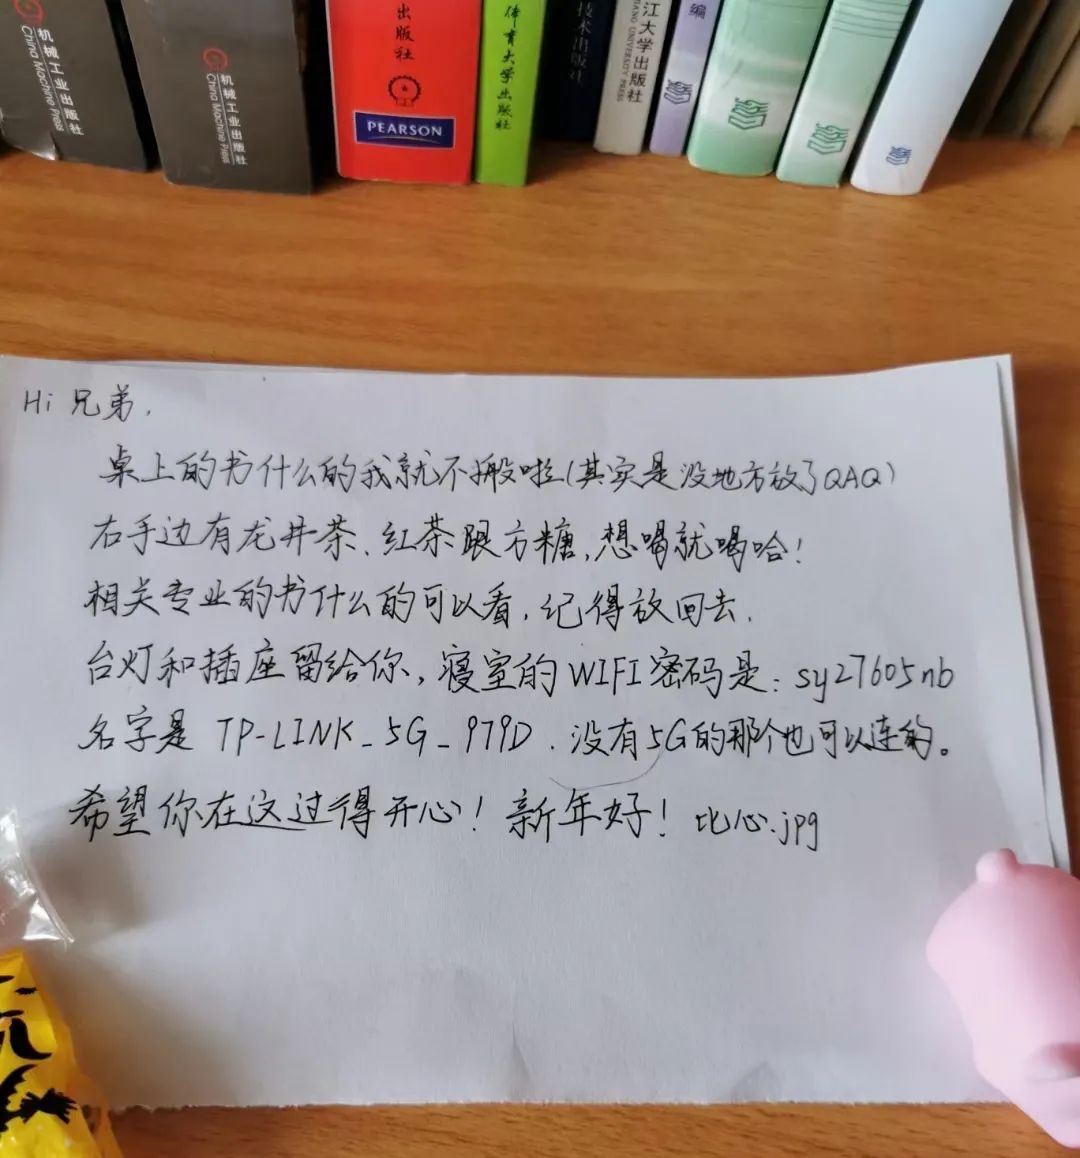 机械工业出版社
China Machine Press
机械工业出版社
China Machine Press
出版社
PEARSON
体育大学出版社
技术出版社
江大学出版社
JIANG UNIVERSITY PRESS
编
Hi 兄弟,
桌上的书什么的我就不搬啦(其实是没地方放了QAQ)
右手边有龙井茶、红茶跟方糖,想喝就喝哈!
相关专业的书什么的可以看,记得放回去.
台灯和插座留给你,寝室的WIFI密码是:sy27605nb
名字是 TP-LINK_5G_979D. 没有5G的那个也可以连的。
希望你在这过得开心!新年好!比心.jpg